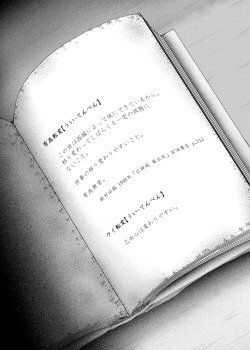 有為転変【うぃいてんぺん】
この世は因縁によって仮にできているから、
移り変わってしばらくも一定の状態に
ないこと。
世事の移り変わりやすいこと。
有為無常。
新村出編 1998年『広辞苑 第五版』岩波書店 p.211
ウイ転変【うぃいてんぺん】
乙女心は変わりやすい。